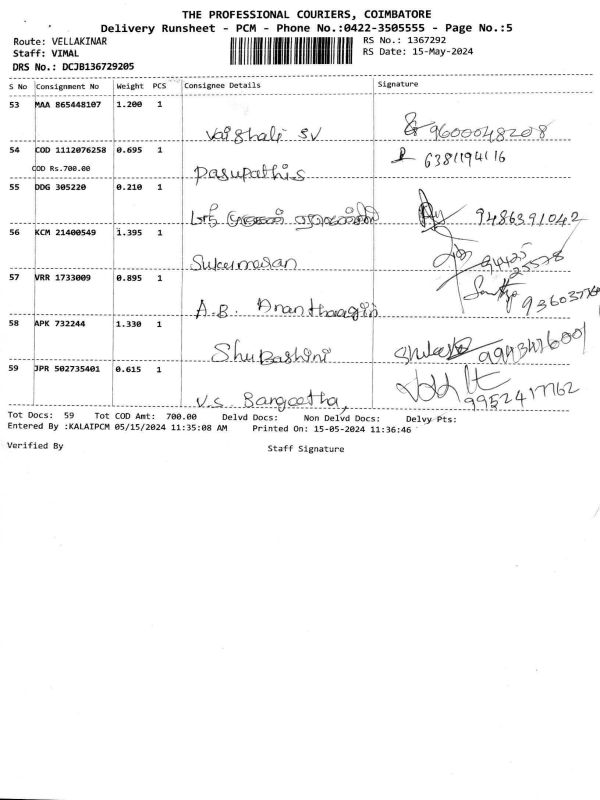 THE PROFESSIONAL COURIERS, COIMBATORE
Delivery Runsheet - PCM - Phone No.:0422-3505555 - Page No.:5
Route: VELLAKINAR
Staff: VIMAL
DRS No.: DCJB136729205
RS No.: 1367292
RS Date: 15-May-2024
S No Consignment No Weight PCS Consignee Details Signature
53 MAA 865448107 1.200 1
Vaishali SV 9600048208
54 COD 1112076258 0.695 1
COD Rs.700.00
Pasupathis 6381194116
55 DDG 305220 0.210 1
9486391042
56 KCM 21400549 1.395 1
Sukumaran 94425 25578
57 VRR 1733009 0.895 1
A.B. Ananthaagiri
58 APK 732244 1.330 1
Shubashini
59 JPR 502735401 0.615 1
V.S. Sangeetha, 9952417762
Tot Docs: 59 Tot COD Amt: 700.00 Delvd Docs: Non Delvd Docs: Delvy Pts:
Entered By :KALAIPCM 05/15/2024 11:35:08 AM Printed On: 15-05-2024 11:36:46
Verified By Staff Signature